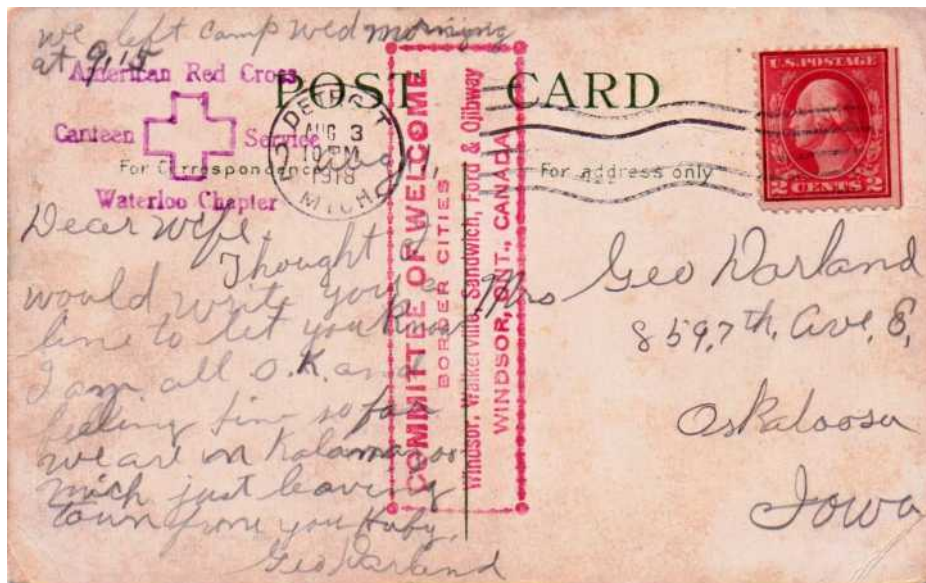 we left camp Wed morning
at 9,15
American Red Cross
Canteen Service
Waterloo Chapter
POST CARD
DETROIT
AUG 3
10 PM
1918
MICH.
For Correspondence
For address only
U.S. POSTAGE
2 CENTS 2
COMMITTEE OF WELCOME
BORDER CITIES
Windsor, Walkerville, Sandwich, Ford & Ojibway
WINDSOR, ONT., CANADA
Dear Wife,
Thought I
would write you a
line to let you know
I am all O.K. and
feeling fine so far
we are in Kalamazoo
Mich just leaving
town from you Huby.
Geo Darland
Mrs Geo Darland
859,7th, Ave, E,
Oskaloosa
Iowa